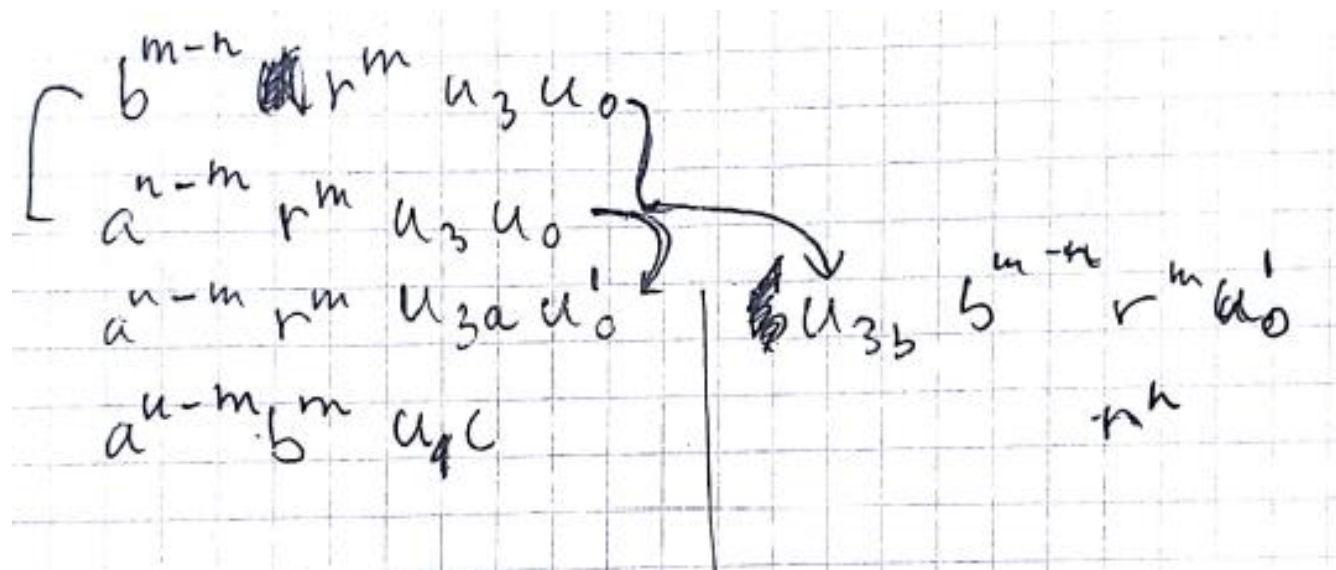 b^{m-n} r^m u_3 u_0
a^{n-m} r^m u_3 u_0
a^{n-m} r^m u_{3a} u_0' | u_{3b} b^{m-n} r^m u_0'
a^{n-m} b^m u_4 c
r^n